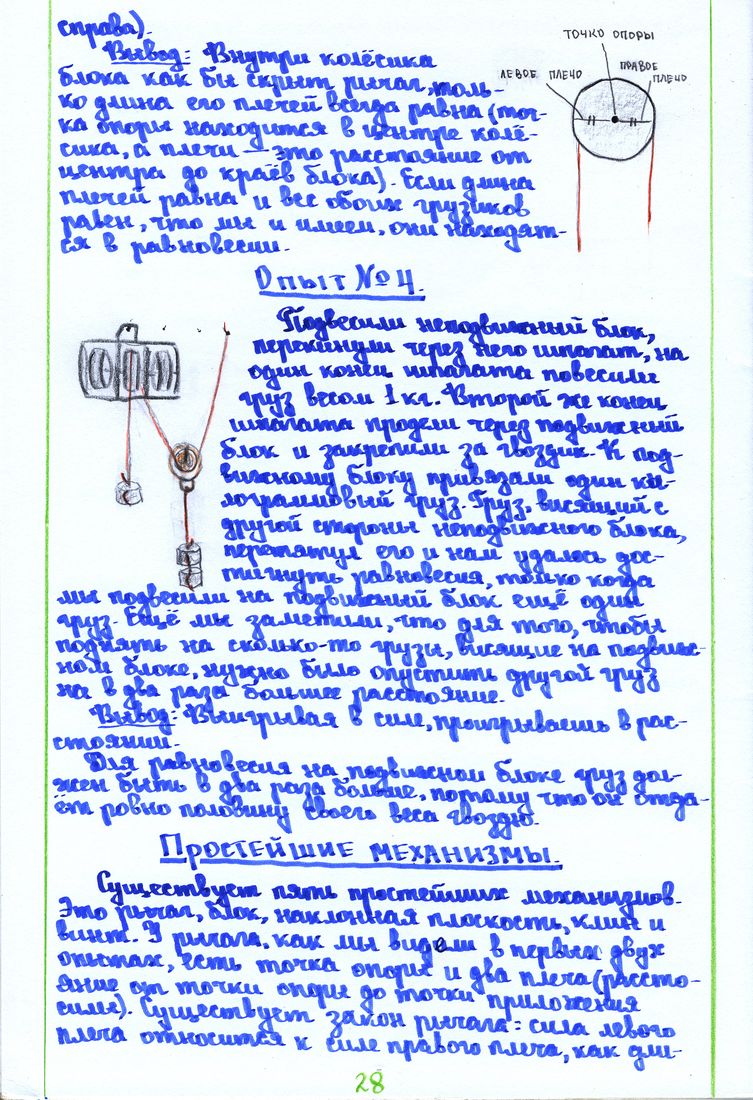 справа).
Вывод: Внутри колёсика
блока как бы скрыт рычаг, толь-
ко длина его плечей всегда равна (точ-
ка опоры находится в центре колё-
сика, а плечи — это расстояние от
центра до краёв блока). Если длина
плечей равна и вес обоих грузиков
равен, что мы и имеем, они находят-
ся в равновесии.
ТОЧКО ОПОРЫ
ЛЕВОЕ ПЛЕЧО
ПРАВОЕ
ПЛЕЧО
Опыт №4.
Подвесили неподвижный блок,
перекинули через него шпагат, на
один конец шпагата повесили
груз весом 1 кг. Второй же конец
шпагата продели через подвижный
блок и закрепили за гвоздик. К под-
вижному блоку привязали один ки-
лограммовый груз. Груз, висящий с
другой стороны неподвижного блока,
перетянул его и нам удалось дос-
тигнуть равновесия, только когда
мы подвесили на подвижный блок ещё один
груз. Ещё мы заметили, что для того, чтобы
поднять на сколько-то грузы, висящие на подвиж-
ном блоке, нужно было опустить другой груз
на в два раза большее расстояние.
Вывод: Выигрывая в силе, проигрываешь в рас-
стоянии.
Для равновесия на подвижном блоке груз дол-
жен быть в два раза больше, потому что он отда-
ёт ровно половину своего веса гвоздю.
Простейшие механизмы.
Существует пять простейших механизмов.
Это рычаг, блок, наклонная плоскость, клин и
винт. У рычага, как мы видели в первых двух
опытах, есть точка опоры и два плеча (рассто-
яние от точки опоры до точки приложения
силы). Существует закон рычага: сила левого
плеча относится к силе правого плеча, как дли-
28